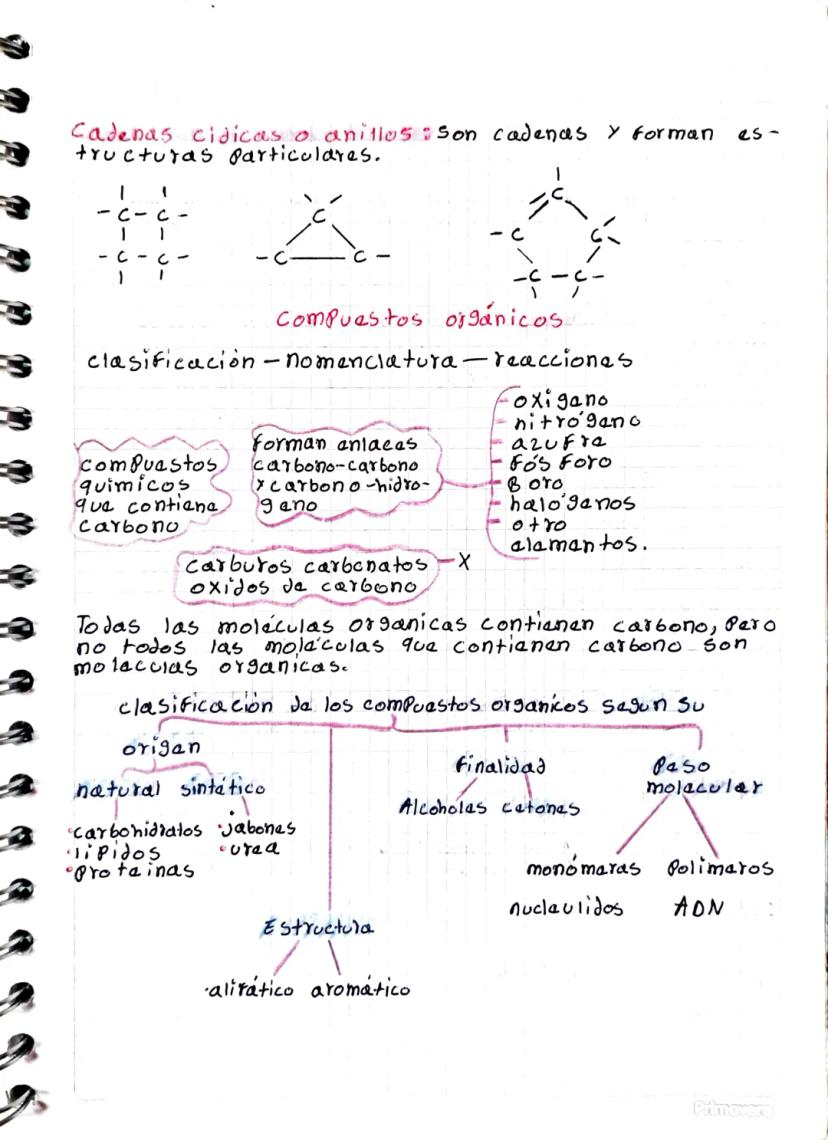 Cadenas cidicas o anillos: Son cadenas y forman es-
tructuras particulares.
- C - C -
- C - C -
C
- C C -
C
- C C
- C - C -
Compuestos orgánicos
clasificación - nomenclatura - reacciones
compuestos
quimicos
que contiene
carbono
forman enlaces
carbono-carbono
y carbono-hidro-
geno
oxigeno
nitrógeno
azufre
fósforo
Boro
halógenos
otro
elementos.
carburos carbonatos - X
oxidos de carbono
Todas las moléculas organicas contienen carbono, pero
no todos las moléculas que contienen carbono son
moleculas organicas.
clasificación de los compuestos organicos segun su
origen
natural sintético
•carbohidratos •jabones
•lipidos •urea
•proteinas
Finalidad
Alcoholes cetonas
Peso
molecular
monómeras Polimeros
nucleulidos ADN
Estructura
•alifático aromático
Primavera